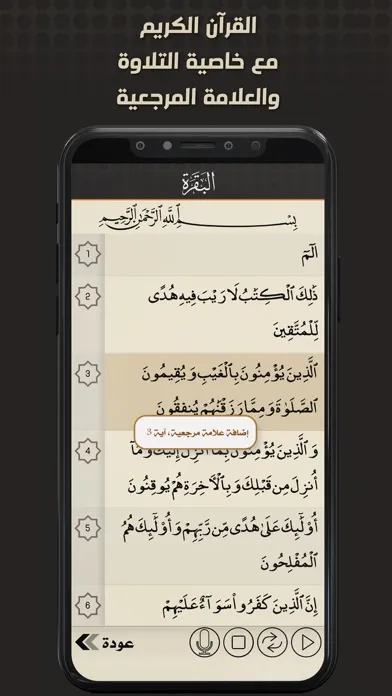 القرآن الكريم
مع خاصية التلاوة
والعلامة المرجعية
البَقَرَة
بِسْمِ ٱللَّهِ ٱلرَّحْمَٰنِ ٱلرَّحِيمِ
1 الٓمٓ
2 ذَٰلِكَ ٱلْكِتَٰبُ لَا رَيْبَ فِيهِ هُدًى
لِّلْمُتَّقِينَ
3 ٱلَّذِينَ يُؤْمِنُونَ بِٱلْغَيْبِ وَيُقِيمُونَ
ٱلصَّلَوٰةَ وَمِمَّا رَزَقْنَٰهُمْ يُنفِقُونَ
إضافة علامة مرجعية، آية 3
4 وَٱلَّذِينَ يُؤْمِنُونَ بِمَآ أُنزِلَ إِلَيْكَ وَمَآ
أُنزِلَ مِن قَبْلِكَ وَبِٱلْءَاخِرَةِ هُمْ يُوقِنُونَ
5 أُوْلَٰٓئِكَ عَلَىٰ هُدًى مِّن رَّبِّهِمْ وَأُوْلَٰٓئِكَ هُمُ
ٱلْمُفْلِحُونَ
6 إِنَّ ٱلَّذِينَ كَفَرُوا۟ سَوَآءٌ عَلَيْهِمْ
عودة